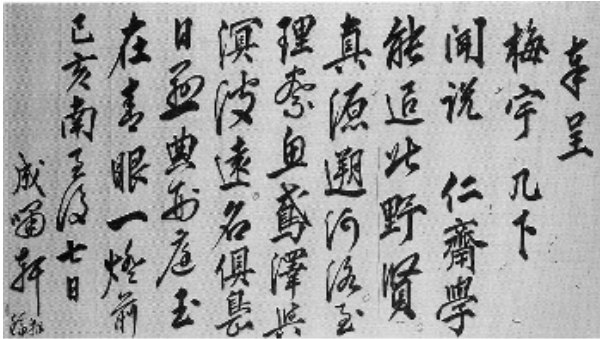 奉呈
梅宇 几下
聞説 仁齋學
能追此野賢
真源遡河洛至
理察魚鳶澤與
溟波遠名俱
日懸典刑庭玉
在青眼一燈前
己亥南至後七日
成嘯軒